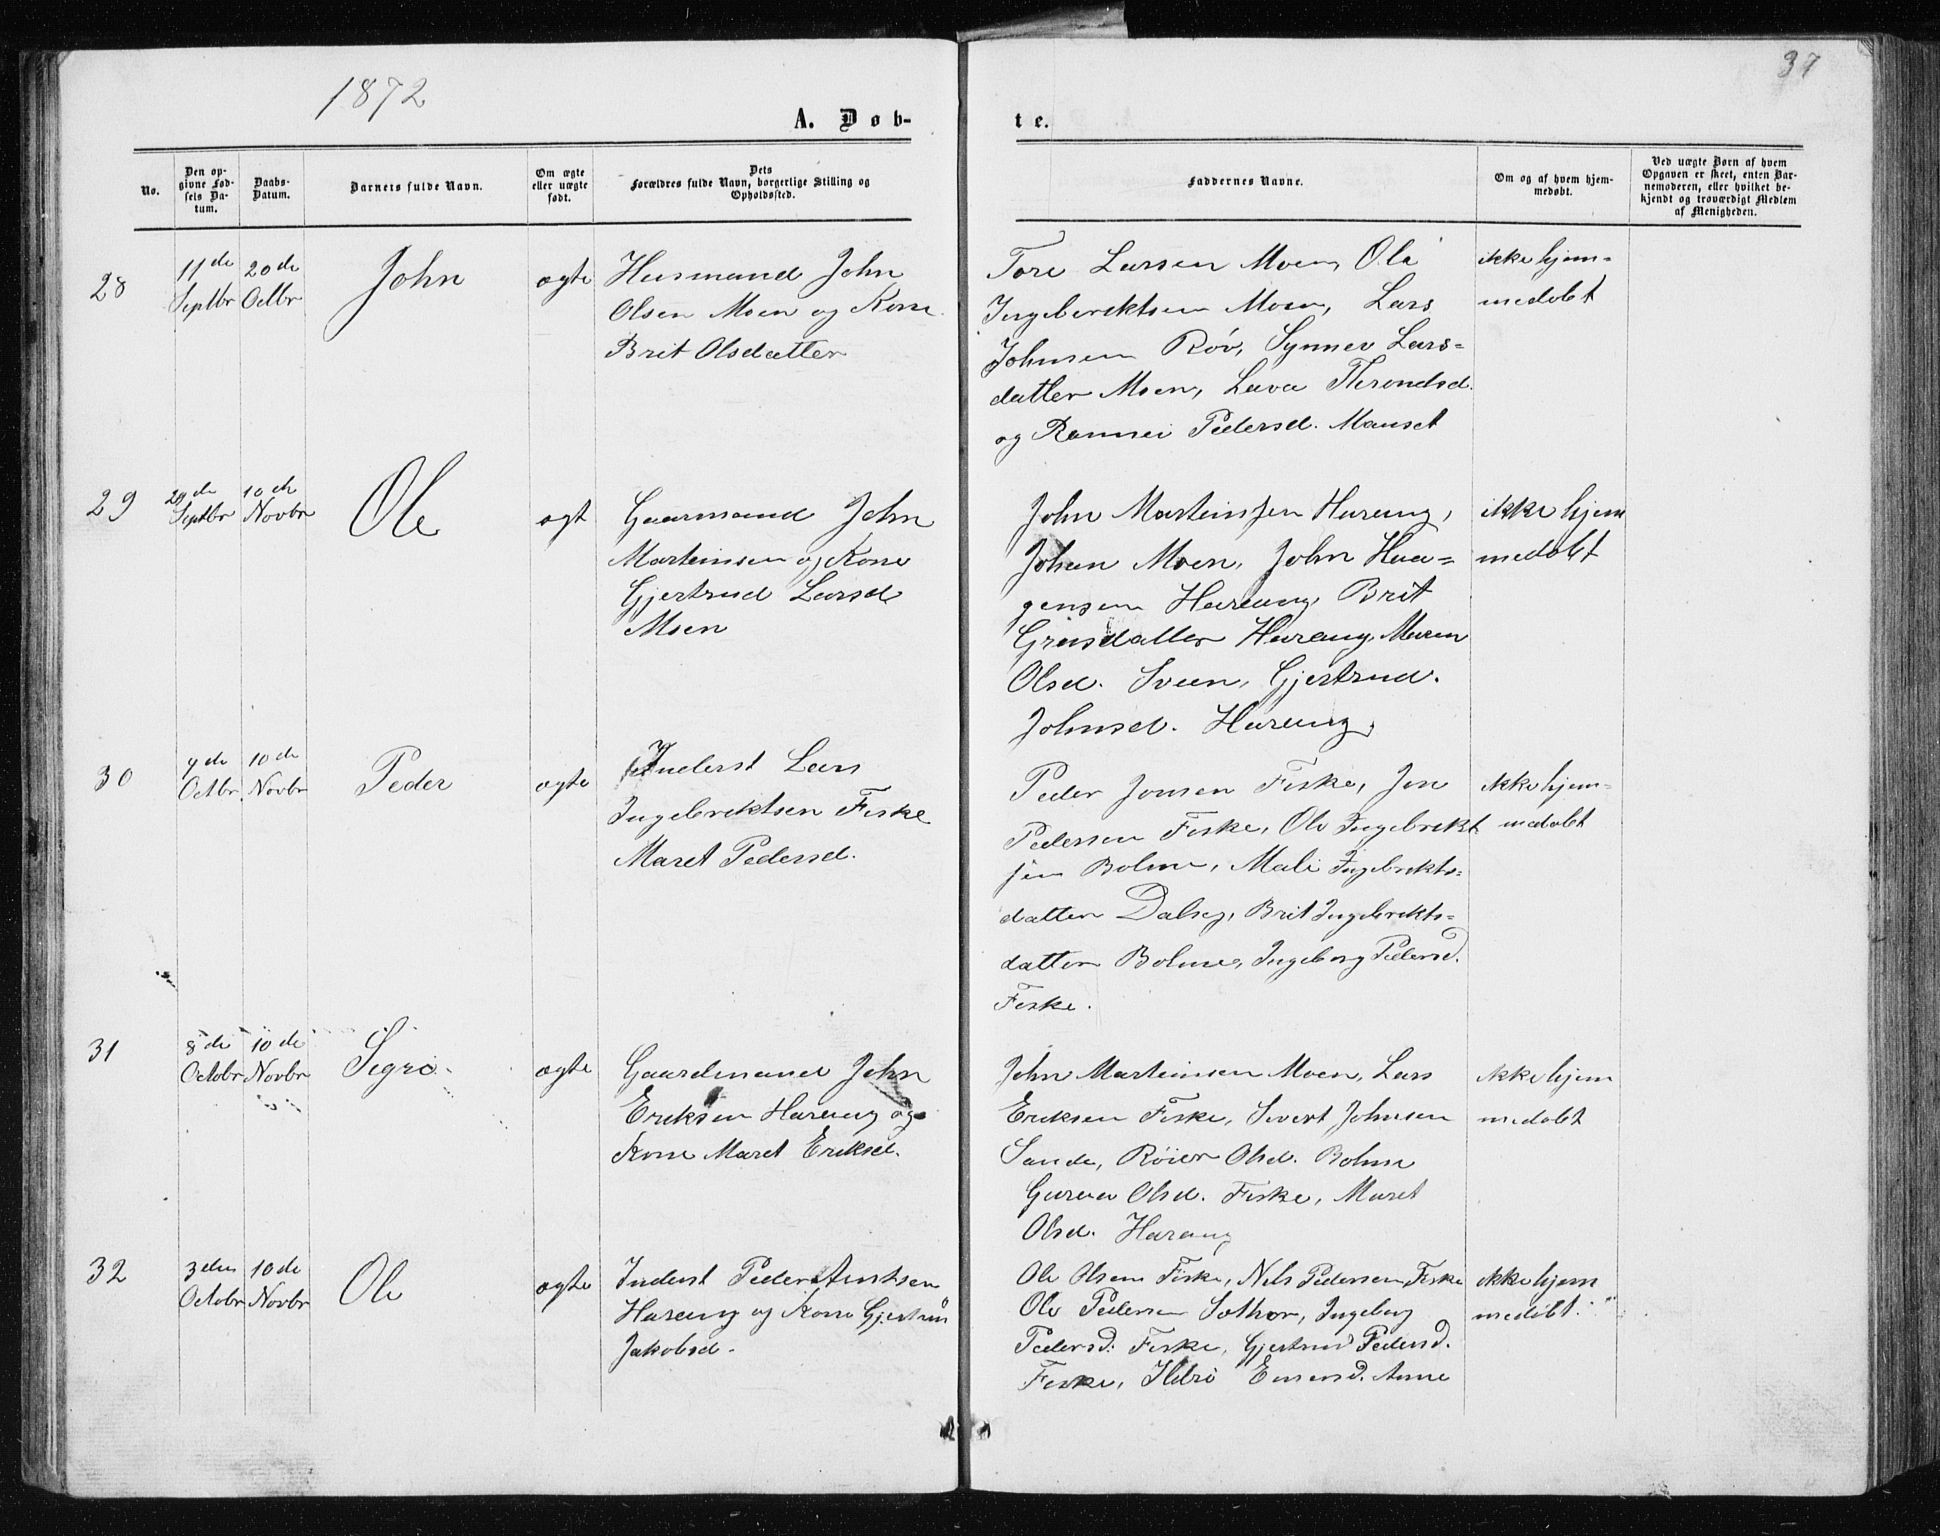 1872
37
A. Døb-
te.
No.
Den op-
givne Fød-
sels Da-
tum.
Daabs-
Datum.
Barnets fulde Navn.
Om ægte
eller uægte
født.
Dets
Forældres fulde Navn, borgerlige Stilling og
Opholdssted.
Faddernes Navne.
Om og af hvem hjem-
medøbt.
Ved uægte Børn af hvem
Opgaven er skeet, enten Bar-
nemoderen, eller hvilket be-
kjendt og troværdigt Medlem
af Menigheden.
28
11de
Septbr
20de
Octbr
John
ægte
Husmand John
Olsen Moen og Kone
Brit Olsdatter
Tore Larsen Moen, Ole
Ingebrektsen Moen, Lars
Johnsen Røv, Synnev Lars=
datter Moen, Lava Throndsd.
og Rannei Pedersd. Mauset
ikke hjem=
medøbt
29
Septbr
10de
Novbr
Ole
ægt
Gaarmand John
Marteinsen og Kone
Gjertrud Larsd
Moen
John Marteinsen Harang,
Johan Moen, John Haa=
gensen Harang, Brit
Harang, Maren
Olsd. Sveen, Gjertrud.
Johnsd. Harang,
ikke hjem
medøbt
30
9de
Octbr.
10de
Novbr
Peder
ægte
Inderst Lars
Ingebrektsen Fiske
Maret Pedersd.
Peder Jonsen Fiske, Jon
Pedersen Fiske, Ole Ingebrekt
sen Bolme, Mali Ingebrekts=
datter Dalseg, Brit Ingebrekts=
datter Bolme, Ingeborg Pedersd.
Fiske.
ikke hjem=
medøbt
31
8de
Octobr
10de
Novbr
Sigrö
ægte
Gaardmand John
Eriksen Harang og
Kone Maret Eriksd.
John Marteinsen Moen, Lars
Eriksen Fiske, Sivert Johnsen
Sande, Röier Olsd. Bolme
Guraa Olsd. Fiske, Maret
Olsd. Harang
ikke hjem
medøbt
32
3den
Octobr
10de
Novbr
Ole
ægte
Inderst Peder Arntsen
Harang og Kone Gjertrud
Jakobsd.
Ole Olsen Fiske, Nels Pedersen Fiske
Ole Pedersen Ingeborg
Pedersd. Fiske, Gjertrud Pedersd.
Fiske, Ildri Anne
ikke hjem
medøbt.